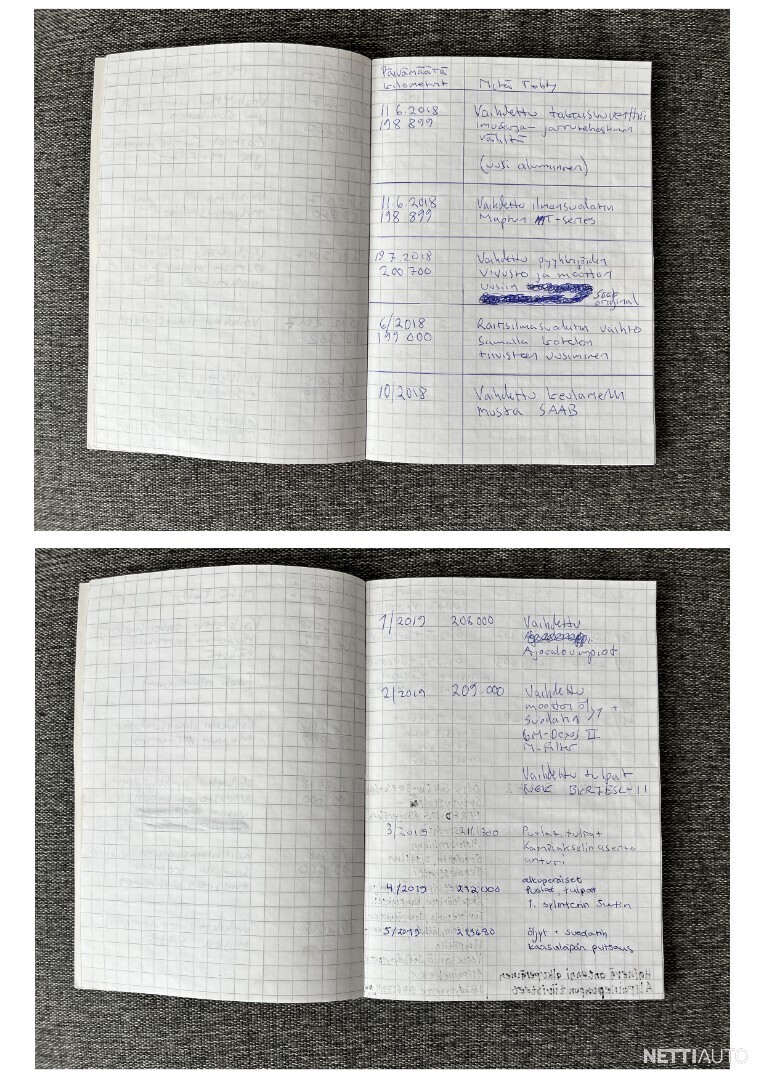 Päivämäärä
kilometrit
Mitä Tehty
11.6.2018
198 899
Vaihdettu
imusarja-
väliltä
(uusi alumiininen)
11.6.2018
198 899
Vaihdettu ilmansuodatin
Maptun MT-series
19.7.2018
200 700
Vaihdettu pyyhkijöiden
vivusto ja moottori
uusiin
Saab
original
6/2018
199 000
Raitisilmasuodatin vaihto
Samalla kotelon
tiivisteen uusiminen
10/2018
Vaihdettu keulamerkki
musta SAAB
1/2019 206 000 Vaihdettu
Ajovaloumpiot
2/2019 209.000 Vaihdettu
moottoriöljy +
suodatin
GM-Dexos II
M-Filter
Vaihdettu tulpat
NGK
3/2019 211 700 Puolat, tulpat
Kampiakselin asento
anturi
alkuperäiset
4/2019 212.000 Puolat, tulpat
1.
5/2019 öljyt + suodatin
kaasuläpän putsaus
NETTIAUTO